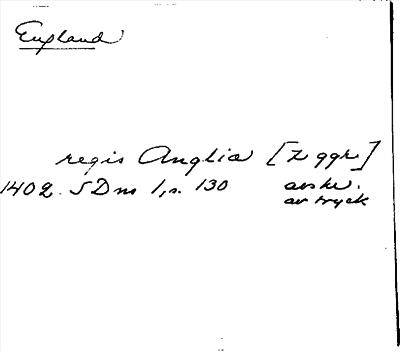 England
regis Anglia [2 ggr]
1402. SDns 1, s. 130 avskr.
av tryck